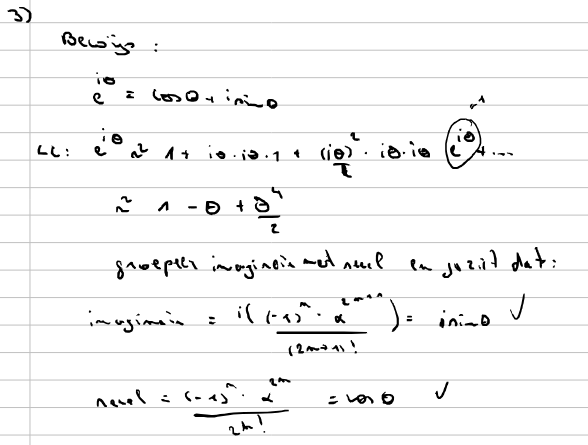 3)
Bewijs :
e^{iθ} = cos θ + i sin θ
LL: e^{iθ} ≈ 1 + iθ · iθ · 1 + (iθ)²/2 · iθ · iθ e^{iθ} + ... 1
≈ 1 - θ + θ⁴/2
groepeer imaginair met reeel en je ziet dat :
imaginair = i( (-1)^n · x^{2n+1} / (2n+1)! ) = i sin θ ✓
reeel = (-1)^n · x^{2n} / 2n! = cos θ ✓